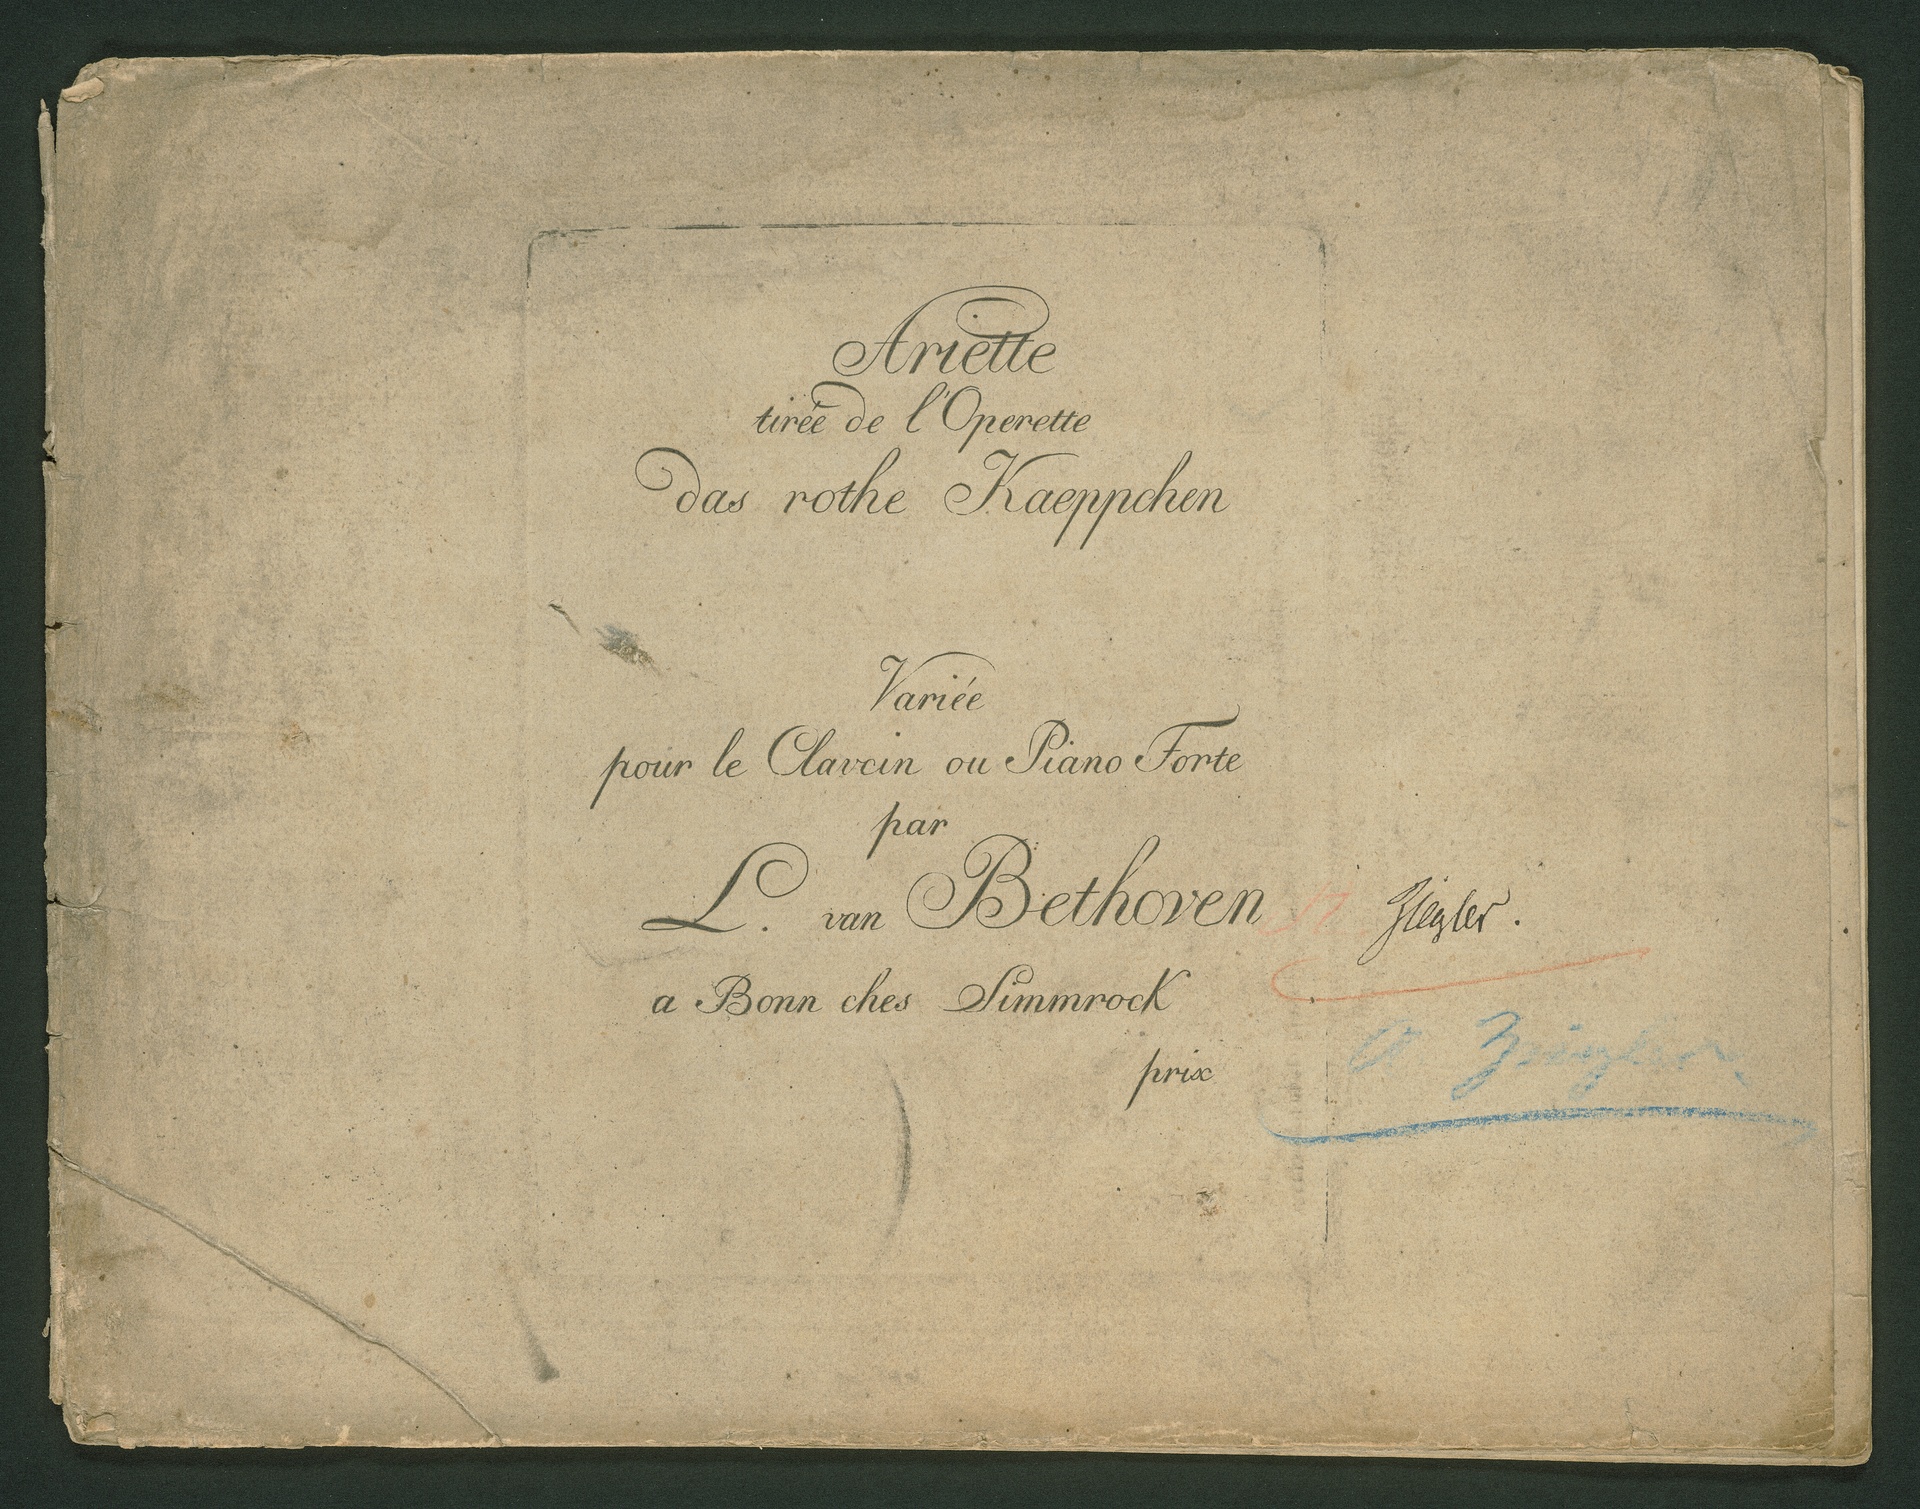 Ariette
tirée de l'Operette
das rothe Kaeppchen
Variée
pour le Clavcin ou Piano Forte
par
L. van Bethoven
Ziegler.
a Bonn ches Simmrock
Ziegler
prix